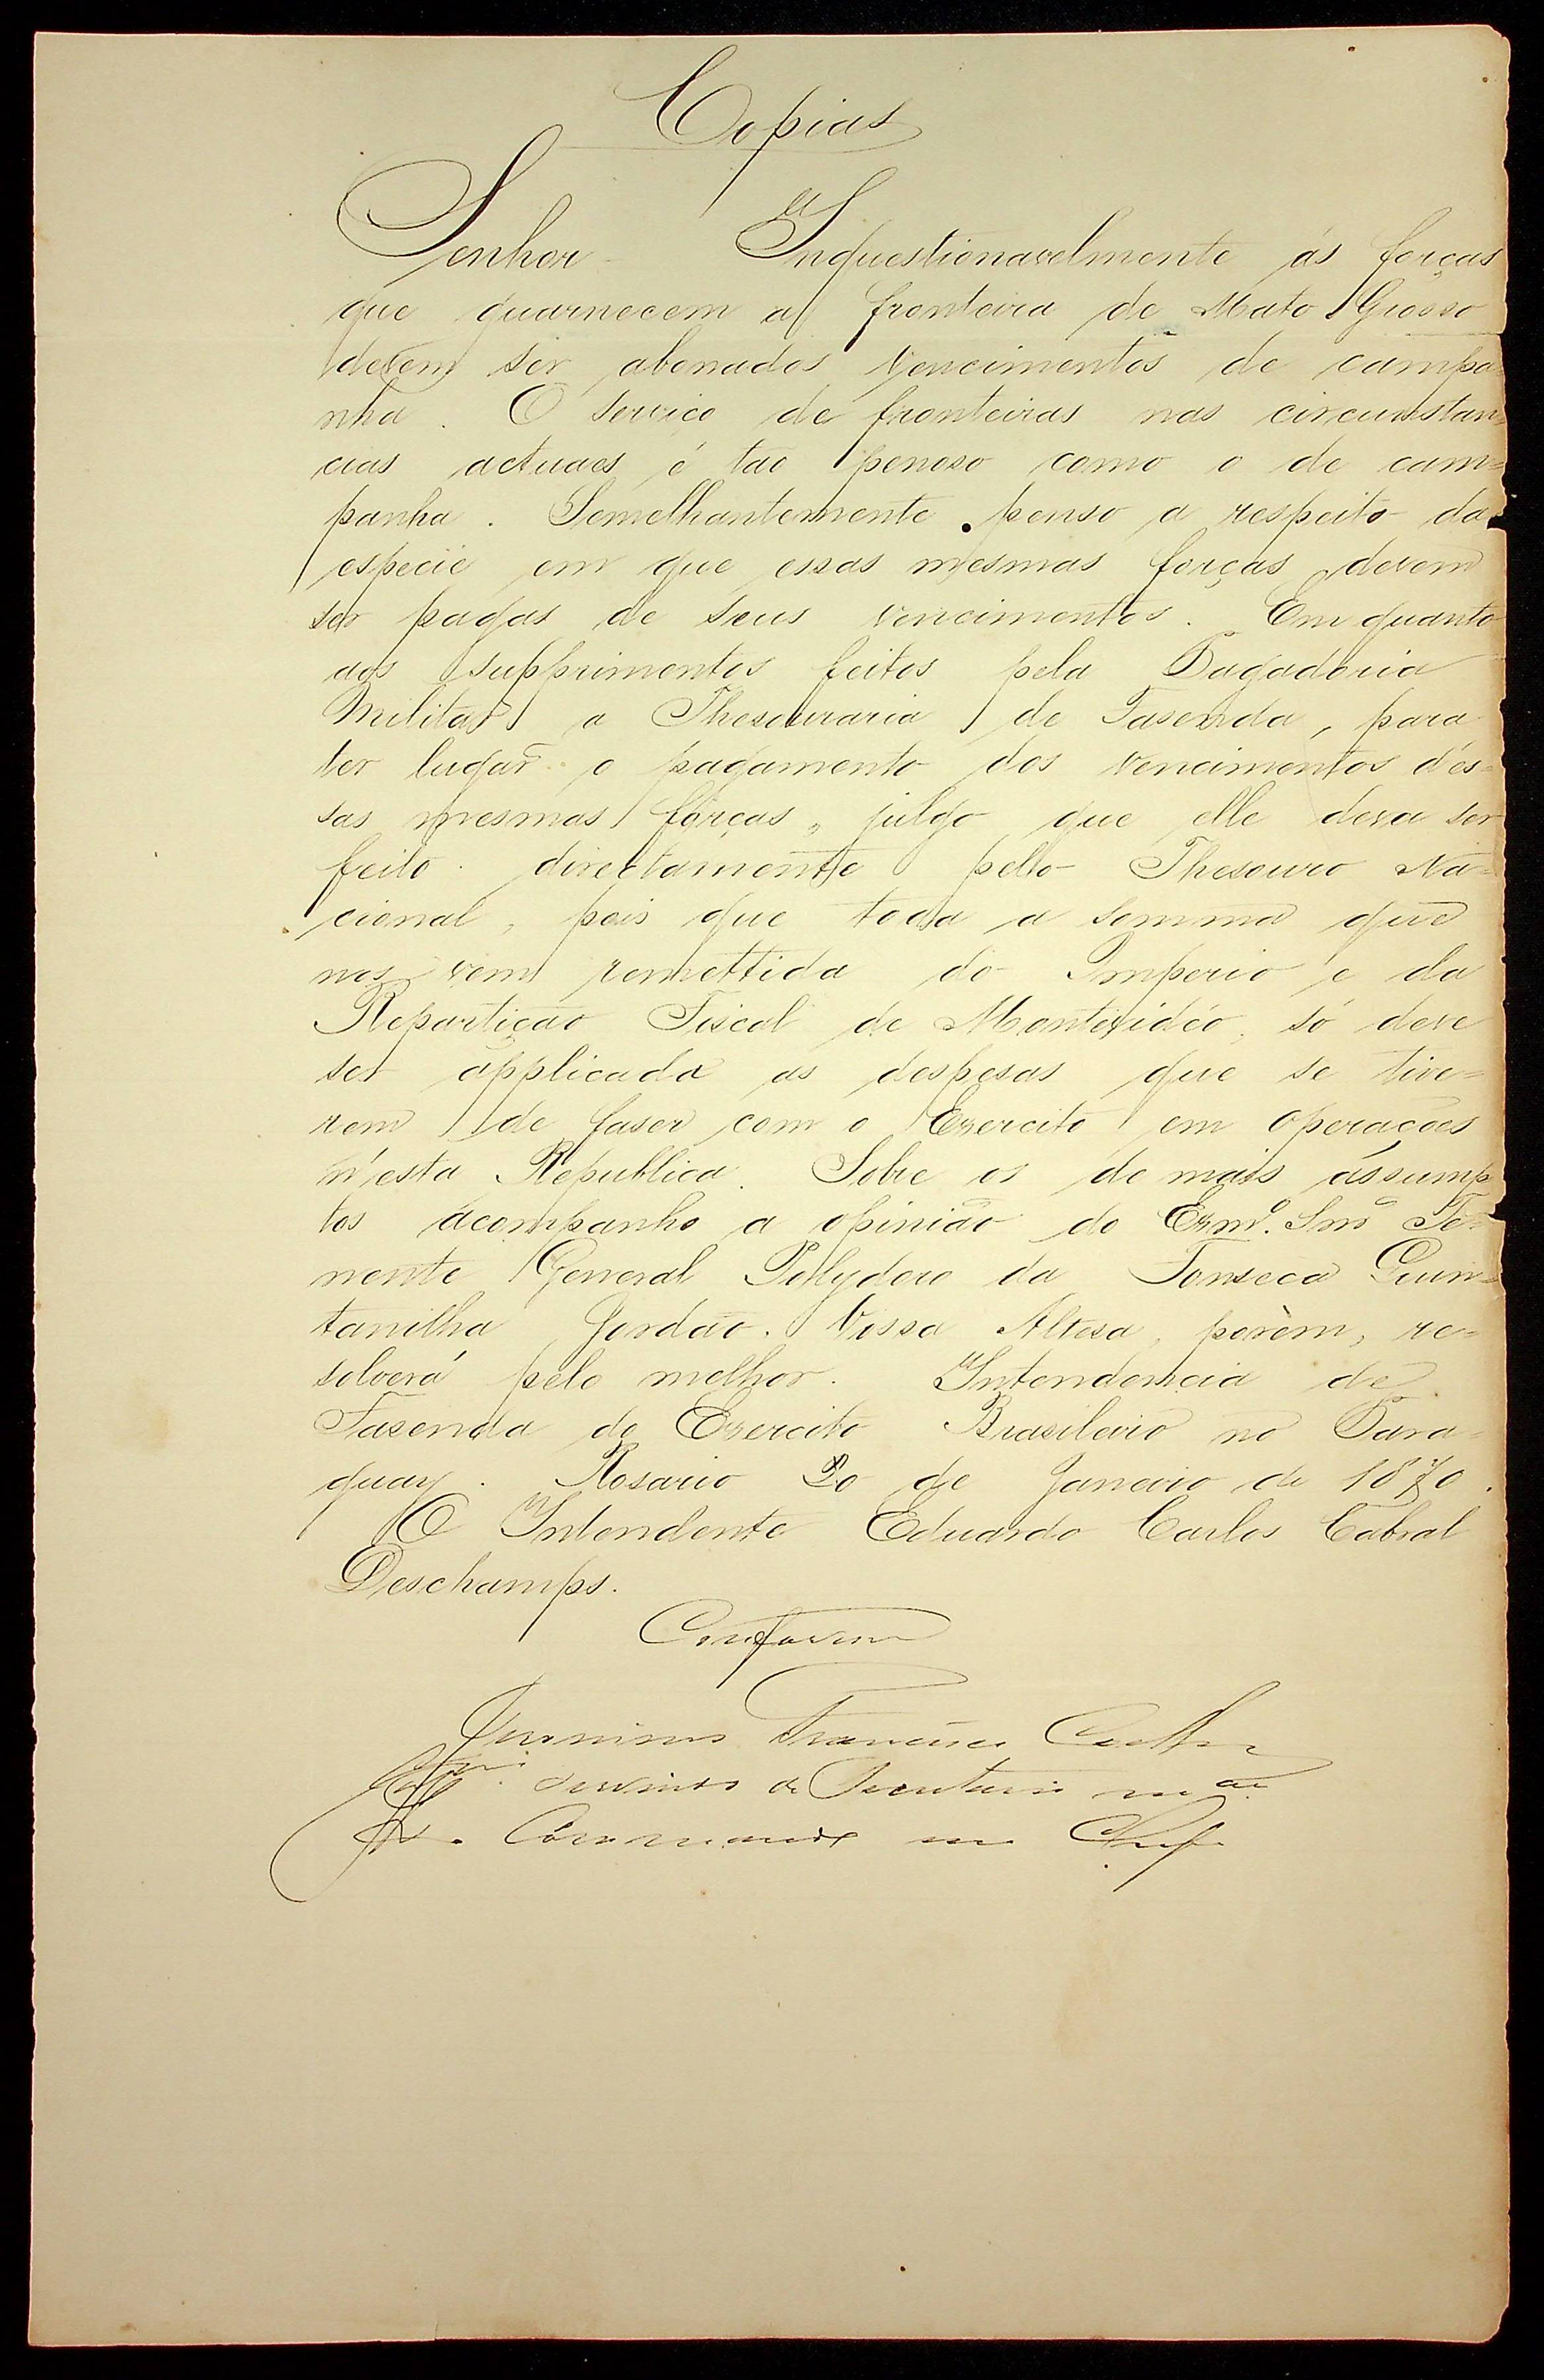 Copias
Senhor - Inquestionavelmente ás forças
que guarnecem a fronteira de Mato Grosso
devem ser abonados vencimentos de campa=
nha. O serviço de fronteiras nas circunstan=
cias actuaes é tão penoso como o de cam=
panha. Semelhantemente penso a respeito da
especie em que essas mesmas forças devem
ser pagas de seus vencimentos. Em quanto
aos supprimentos feitos pela Pagadoria
Militar a Thesouraria de Fasenda, para
ter lugar o pagamento dos vencimentos d'es=
sas mesmas forças, julgo que elle deva ser
feito directamente pello Thesouro Na=
cional, pois que toda a somma que
nos vem remettida do Imperio e da
Repartição Fiscal de Montevidéo, só deve
ser applicada as despesas que se tive=
rem de faser com o Exercito em operações
n'esta Republica. Sobre os de mais assump
tos acompanho a opinião do Exmº. Snr Te=
nente General Polydoro da Fonseca Quin=
tanilha Jordão. Vossa Altesa, porèm, re=
solverá pelo melhor. Intendencia de
Fasenda do Exercito Brasileiro no Para=
guay. Rosario 20 de Janeiro de 1870.
O Intendente Eduardo Carlos Cabral
Deschamps.
Conforme
Jeronimo Francisco Coelho
servindo de Secretario
Commando em Chefe